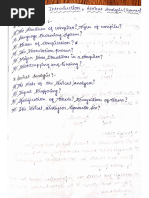 Introduction & Lexical Analysis
1) The Structure of compiler? Types of compiler?
2) Language Processing System?
3) Phases of Compilation?
4) The Translation Process?
5) Major Data Structures in a Compiler?
6) Bootstrapping and Porting?
Lexical Analysis:-
1) The Role of the Lexical Analyzer?
2) Input Buffering?
3) Specification of Tokens? Recognition of Tokens?
4) The Lexical Analyzer Generator Lex?